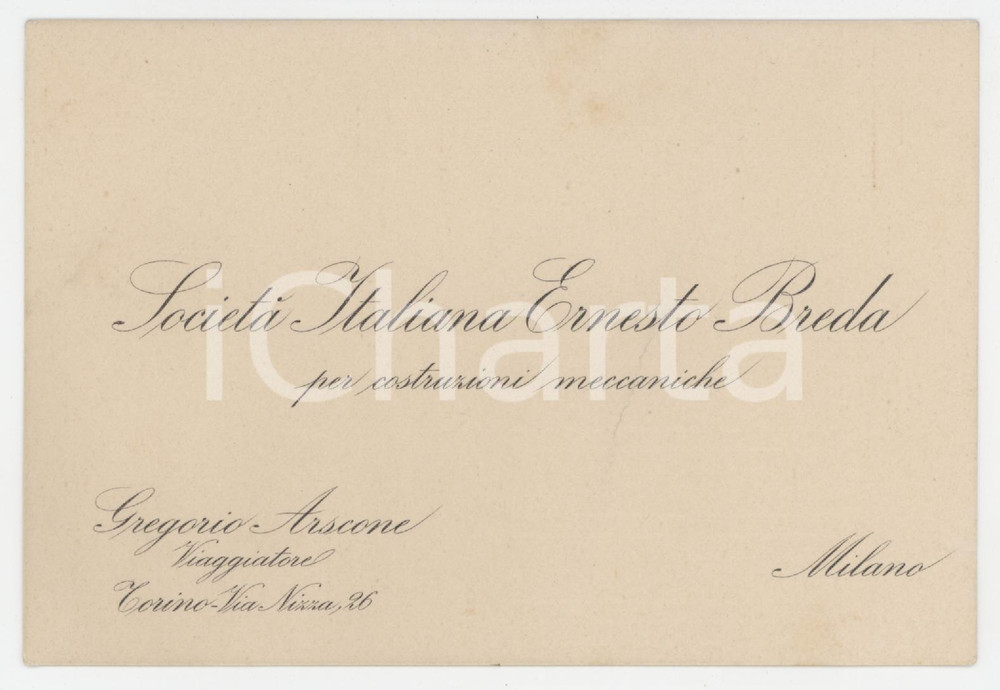 Società Italiana Ernesto Breda
per costruzioni meccaniche
Gregorio Arscone
Viaggiatore
Torino-Via Nizza, 26
Milano
iCharta